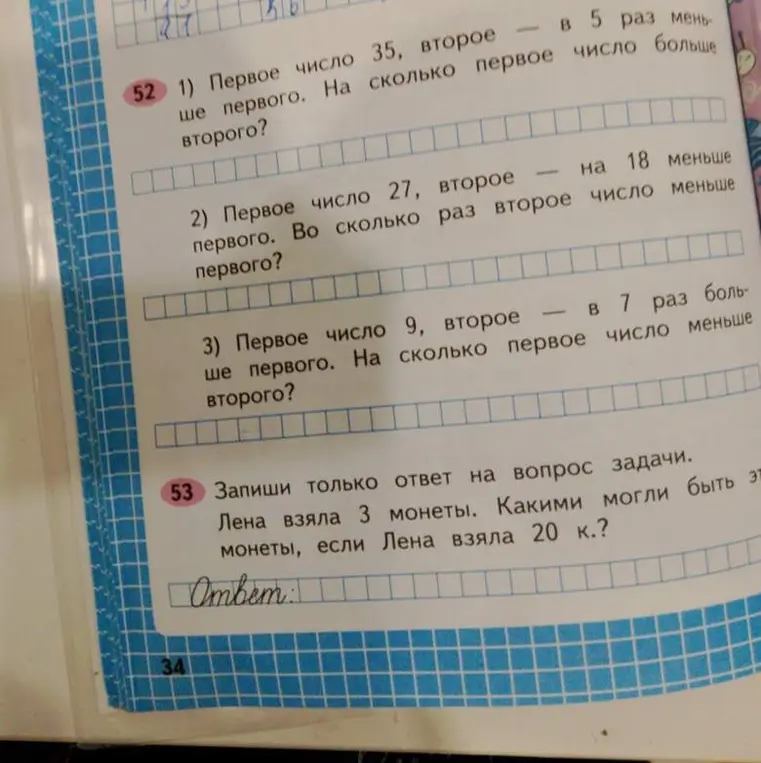 52 1) Первое число 35, второе — в 5 раз мень-
ше первого. На сколько первое число больше
второго?
2) Первое число 27, второе — на 18 меньше
первого. Во сколько раз второе число меньше
первого?
3) Первое число 9, второе — в 7 раз боль-
ше первого. На сколько первое число меньше
второго?
53 Запиши только ответ на вопрос задачи.
Лена взяла 3 монеты. Какими могли быть
монеты, если Лена взяла 20 к.?
Ответ:
34